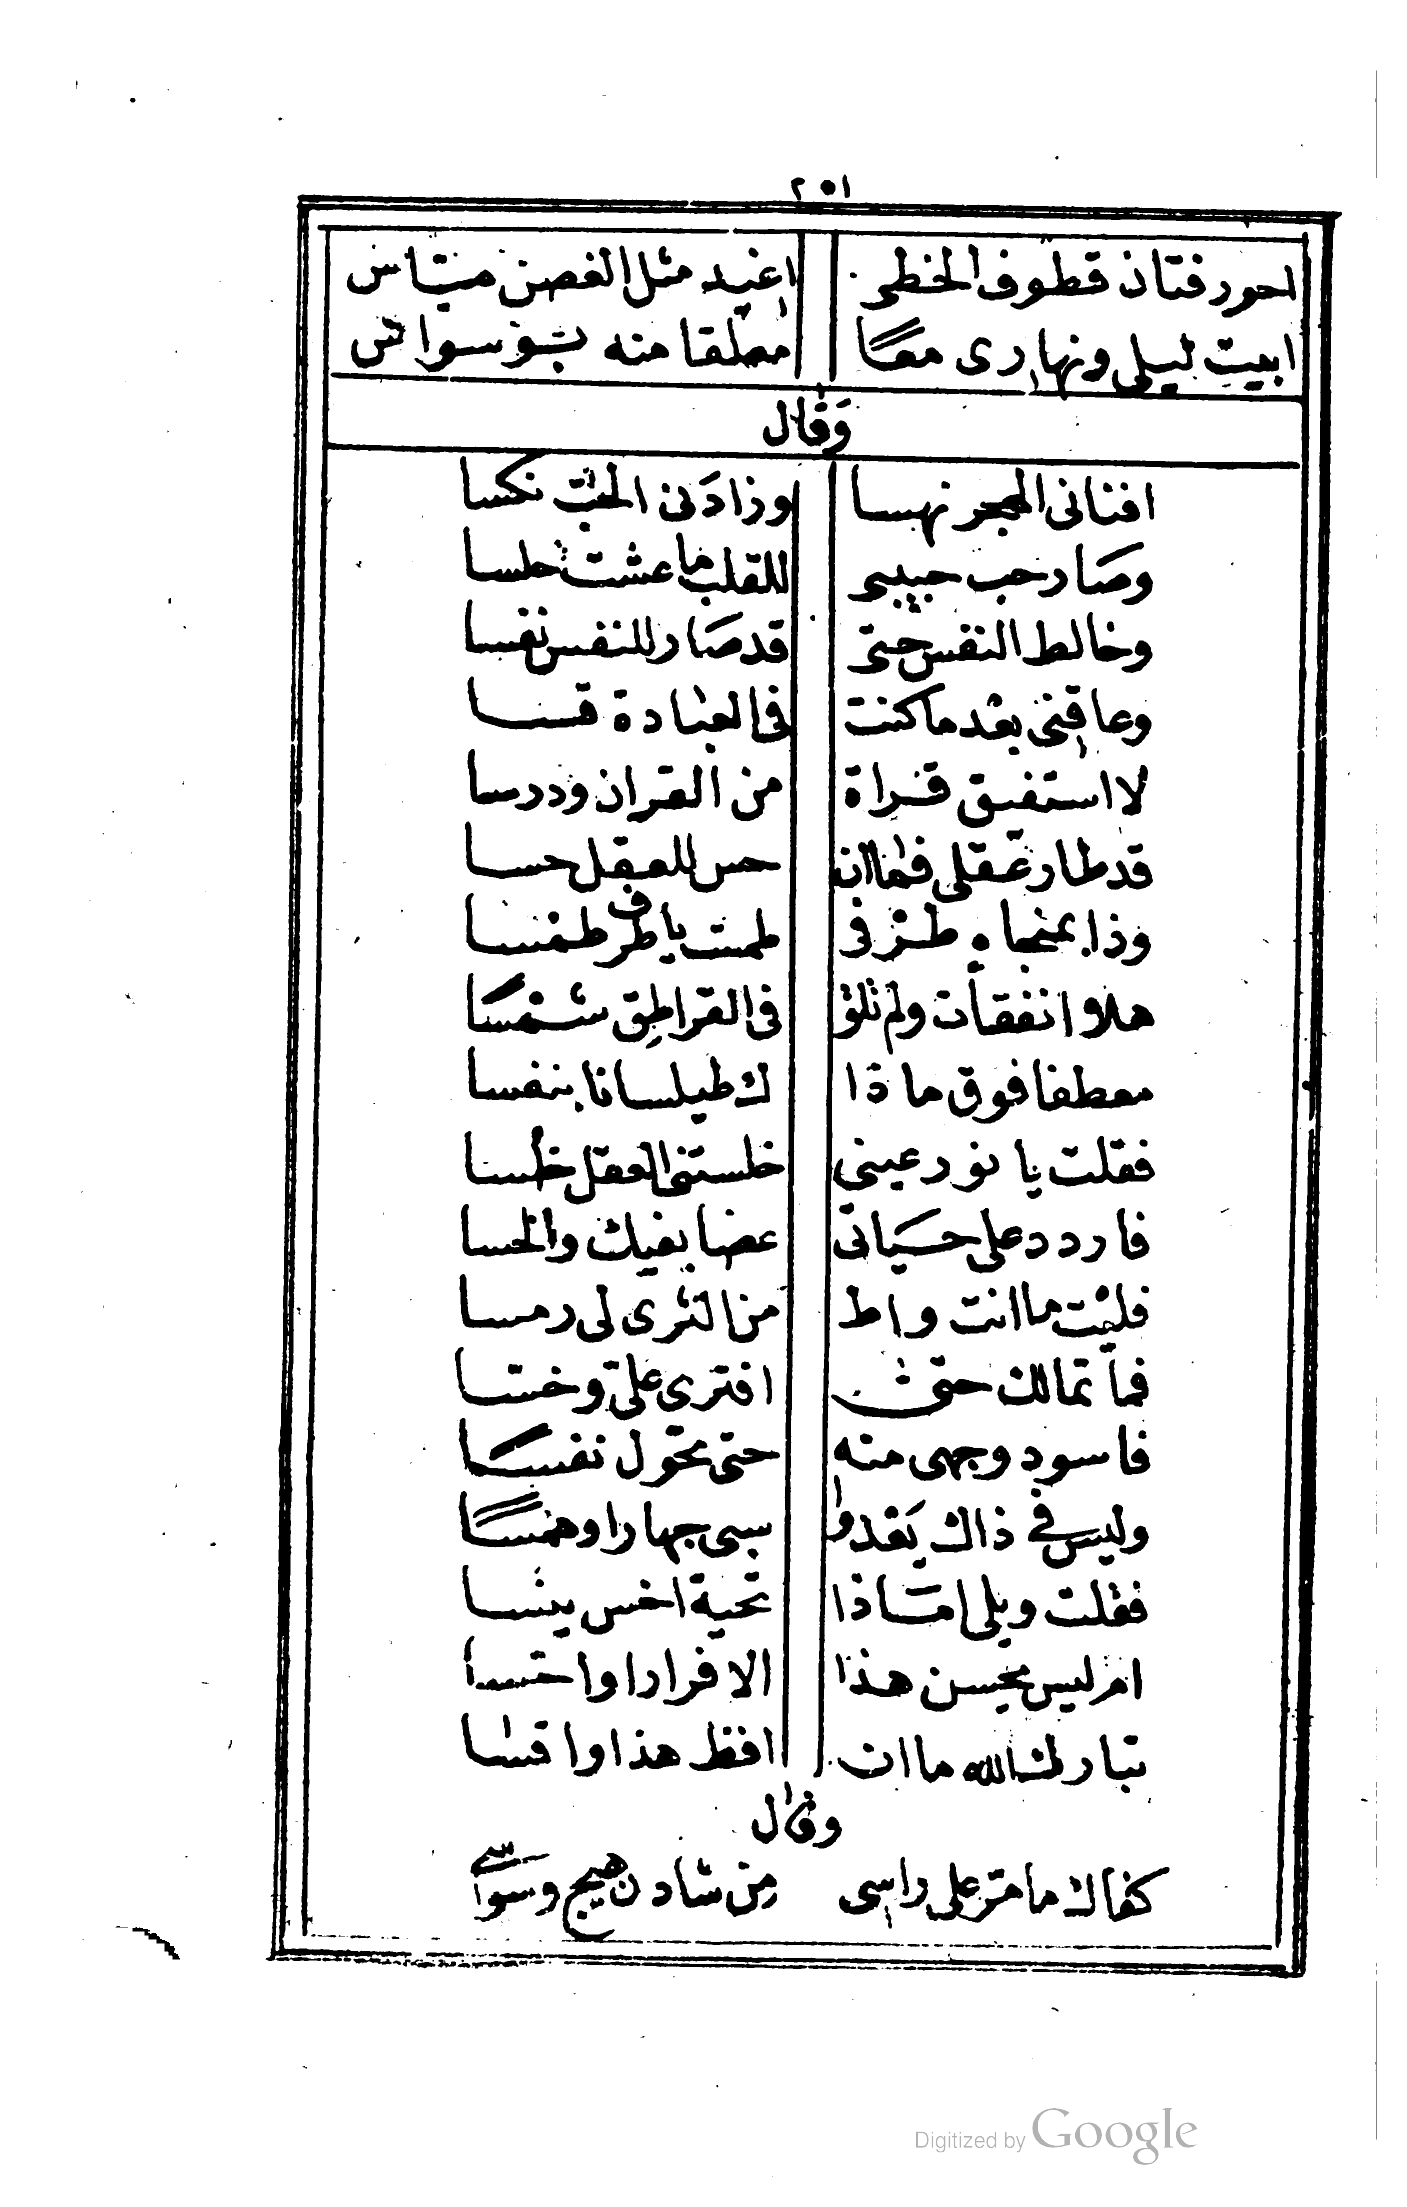 ٢٥١
احور فتان قطوف الخطى اغيد مثل الغصن مياس
ابيت ليلى ونهارى معا معلقا منه بوسواس
وَقال
افنانى الهجر نهسا وزادَنى الحبّ نكسا
وصار حب حبيبى للقلب ما عشت حلسا
وخالط النفس حتى قد صار للنفس نفسا
وعاقنى بعد ما كنت فى العبادة قسا
لا استفيق قراة من القران ودرسا
قد طار عقلى فما ان حس للعقل حسا
وذا بمنجاه طرفى طمست يا طرف طمسا
هلا و انفقات ولم تلق فى القراطق شمسا
معطفا فوق ماذا ك طيلسانا بنفسا
فقلت يا نور عينى خلستنى العقل خلسا
فاردد على حياتى عضا بفيك والحسا
فليت ما انت واط من الثرى لى رمسا
فما تمالك حتى افترى علىّ وخسا
فاسود وجهى منه حتى تحوّل نفسا
وليس فى ذاك يعدوا سبى جهارا وهمسا
فقلت ويلى امّا ذا تحية اخس بيسا
ام ليس يحسن هذا الا فرارا واحتسا
تبارك الله ما ان افظ هذا واقسا
وقال
كفاك ما مرّ على راسى من شادن هيج وسواسے
Digitized by Google